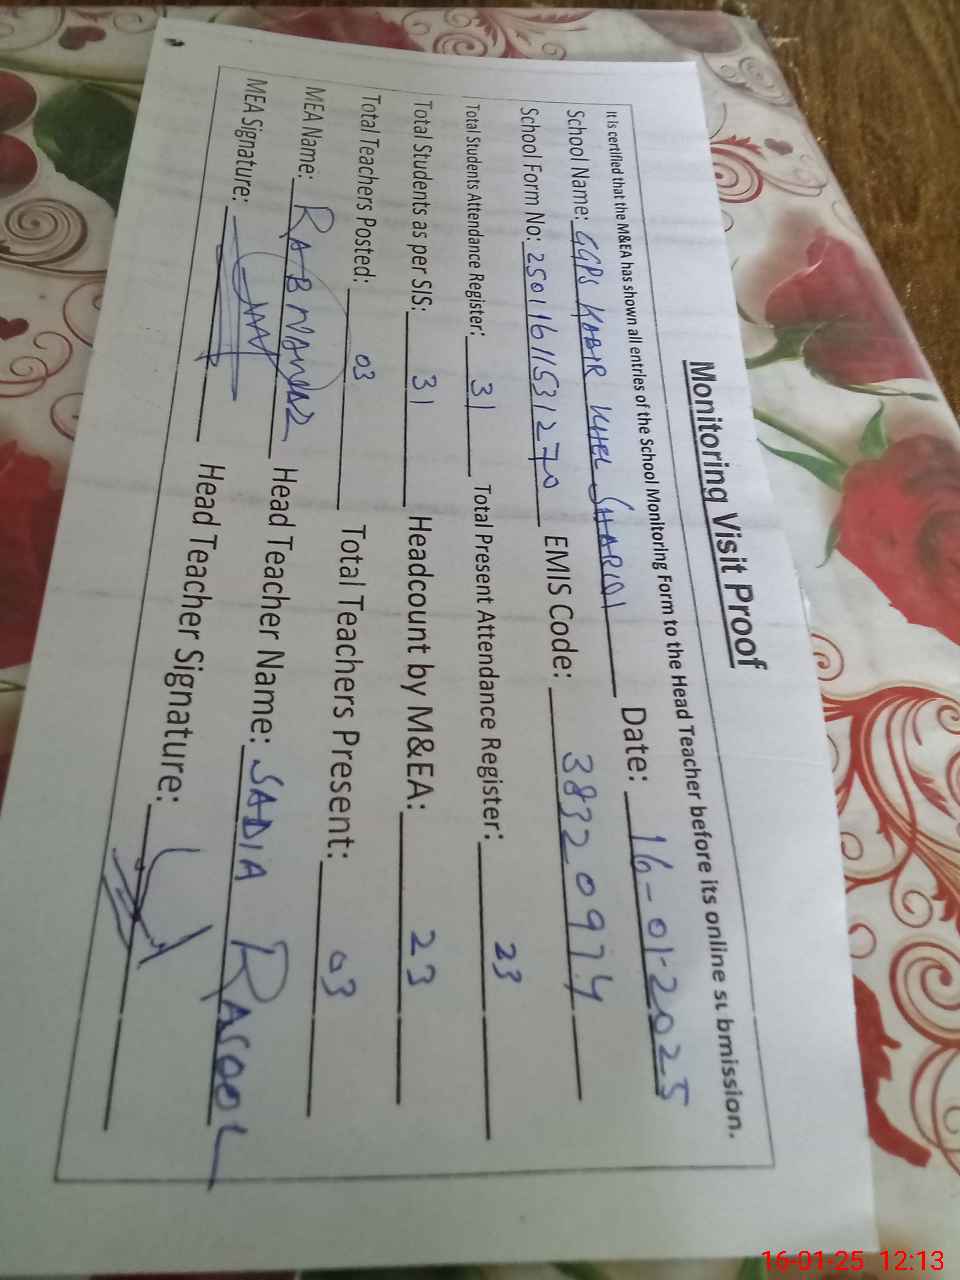 Monitoring Visit Proof
It is certified that the M&EA has shown all entries of the School Monitoring Form to the Head Teacher before its online submission.
School Name: GGPS KABIR KHEL SHARQI Date: 16-01-2025
School Form No: 25011611531270 EMIS Code: 38320974
Total Students Attendance Register: 31 Total Present Attendance Register: 23
Total Students as per SIS: 31 Headcount by M&EA: 23
Total Teachers Posted: 03 Total Teachers Present: 03
MEA Name: RAB NAWAZ Head Teacher Name: SADIA RASOOL
MEA Signature: Head Teacher Signature:
16-01-25 12:13